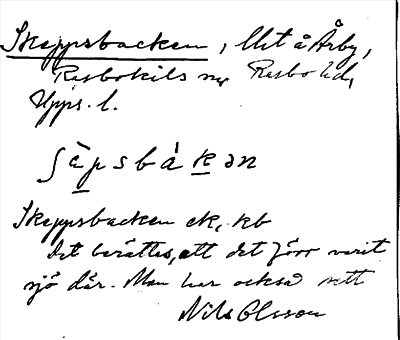 Skeppsbacken, Utst å Årby,
Rasbokils sn, Rasbo hd,
Upps. l.
ʃä̀psbákən
Skeppsbacken ek, kb
Det berättas, att det förr varit
sjö där. Man har också sett
Nils Olsson